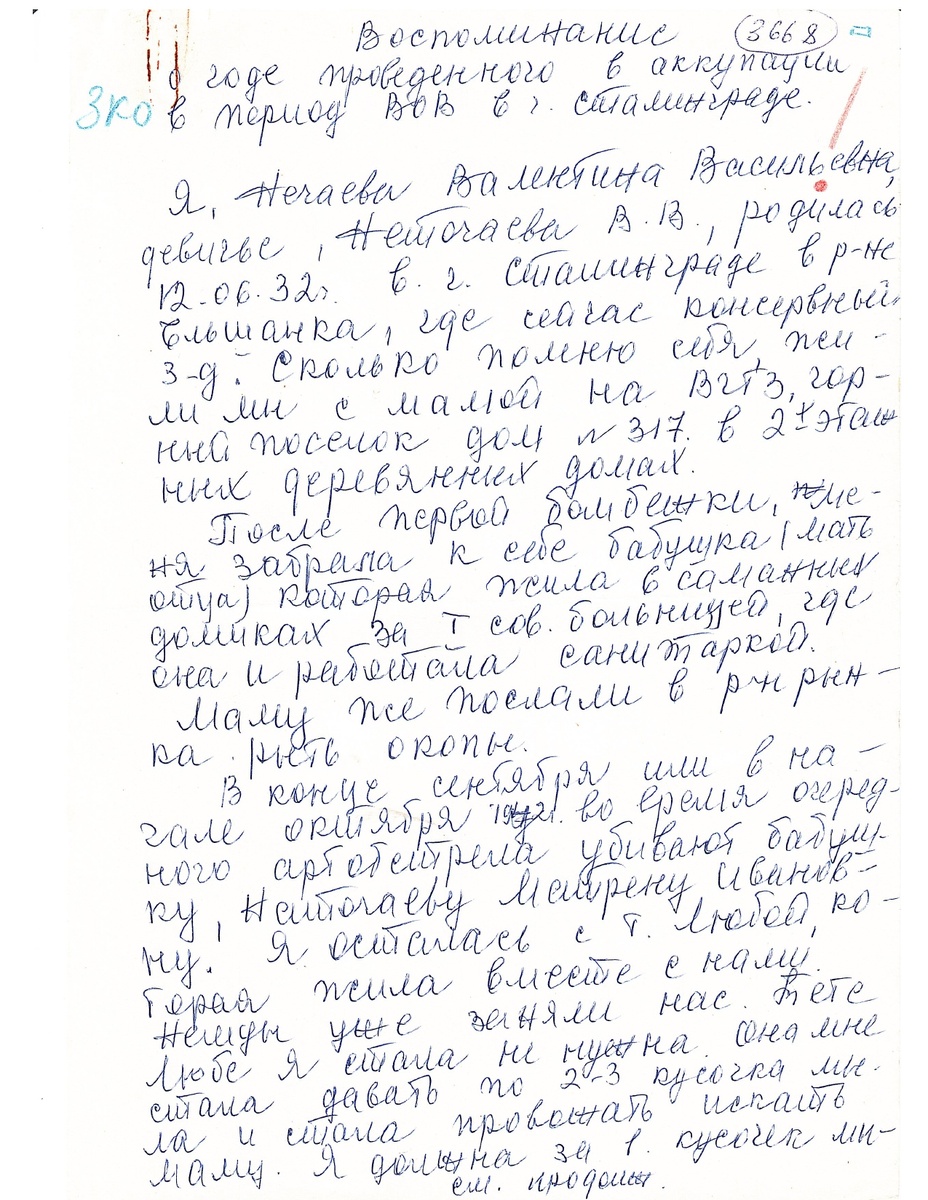 Воспоминание
3668
о годе проведенного в аккупации
ЗКО
в период ВОВ в г. Сталинграде.
Я, Нечаева Валентина Васильевна,
девичье, Неточаева В.В., родилась
12.06.32г. в г. Сталинграде в р-не
Ельшанка, где сейчас консервный
з-д. Сколько помню себя, жи-
ли мы с мамой на ВГТЗ, гор-
ный поселок дом №317. в 2х этаж
ных деревянных домах.
После первой бомбежки, ме-
ня забрала к себе бабушка (мать
отца) которая жила в саманных
домиках за I сов. больницей, где
она и работала санитаркой.
Маму же послали в р-н рын-
ка рыть окопы.
В конце сентября или в на-
чале октября 1942г. во время очеред-
ного артобстрела убивают бабуш-
ку, Неточаеву Матрену Иванов-
ну. Я осталась с т. Любой, ко-
торая жила вместе с нами.
Немцы уже заняли нас. Тете
Любе я стала не нужна. Она мне
стала давать по 2-3 кусочка мы-
ла и стала провожать искать
маму. Я должна за 1. кусочек мы-
см. продолж.